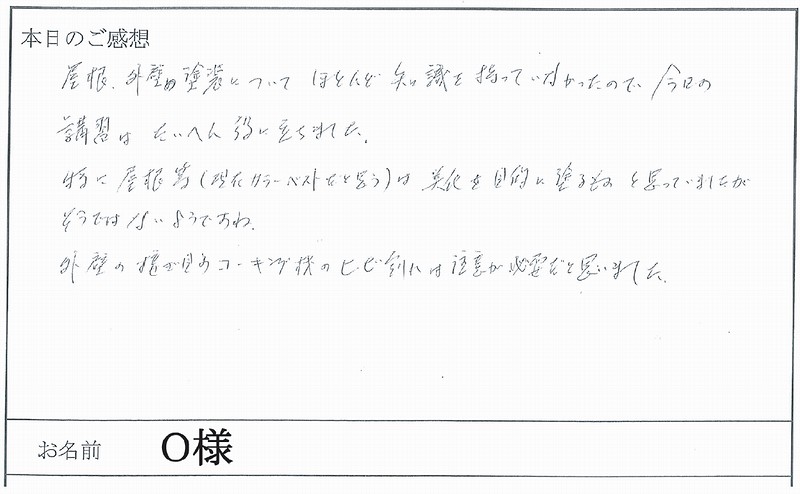 本日のご感想
屋根、外壁の塗装について ほとんど 知識を持っていなかったので、今日の
講習は たいへん 役に立ちました。
特に 屋根等(現在カラーベストだと思う)は 美化を目的に塗るもの と思っていましたが
そうでは ないようですね。
外壁の コーキング ヒビ割れには 注意が必要だと思いました。
お名前 O様